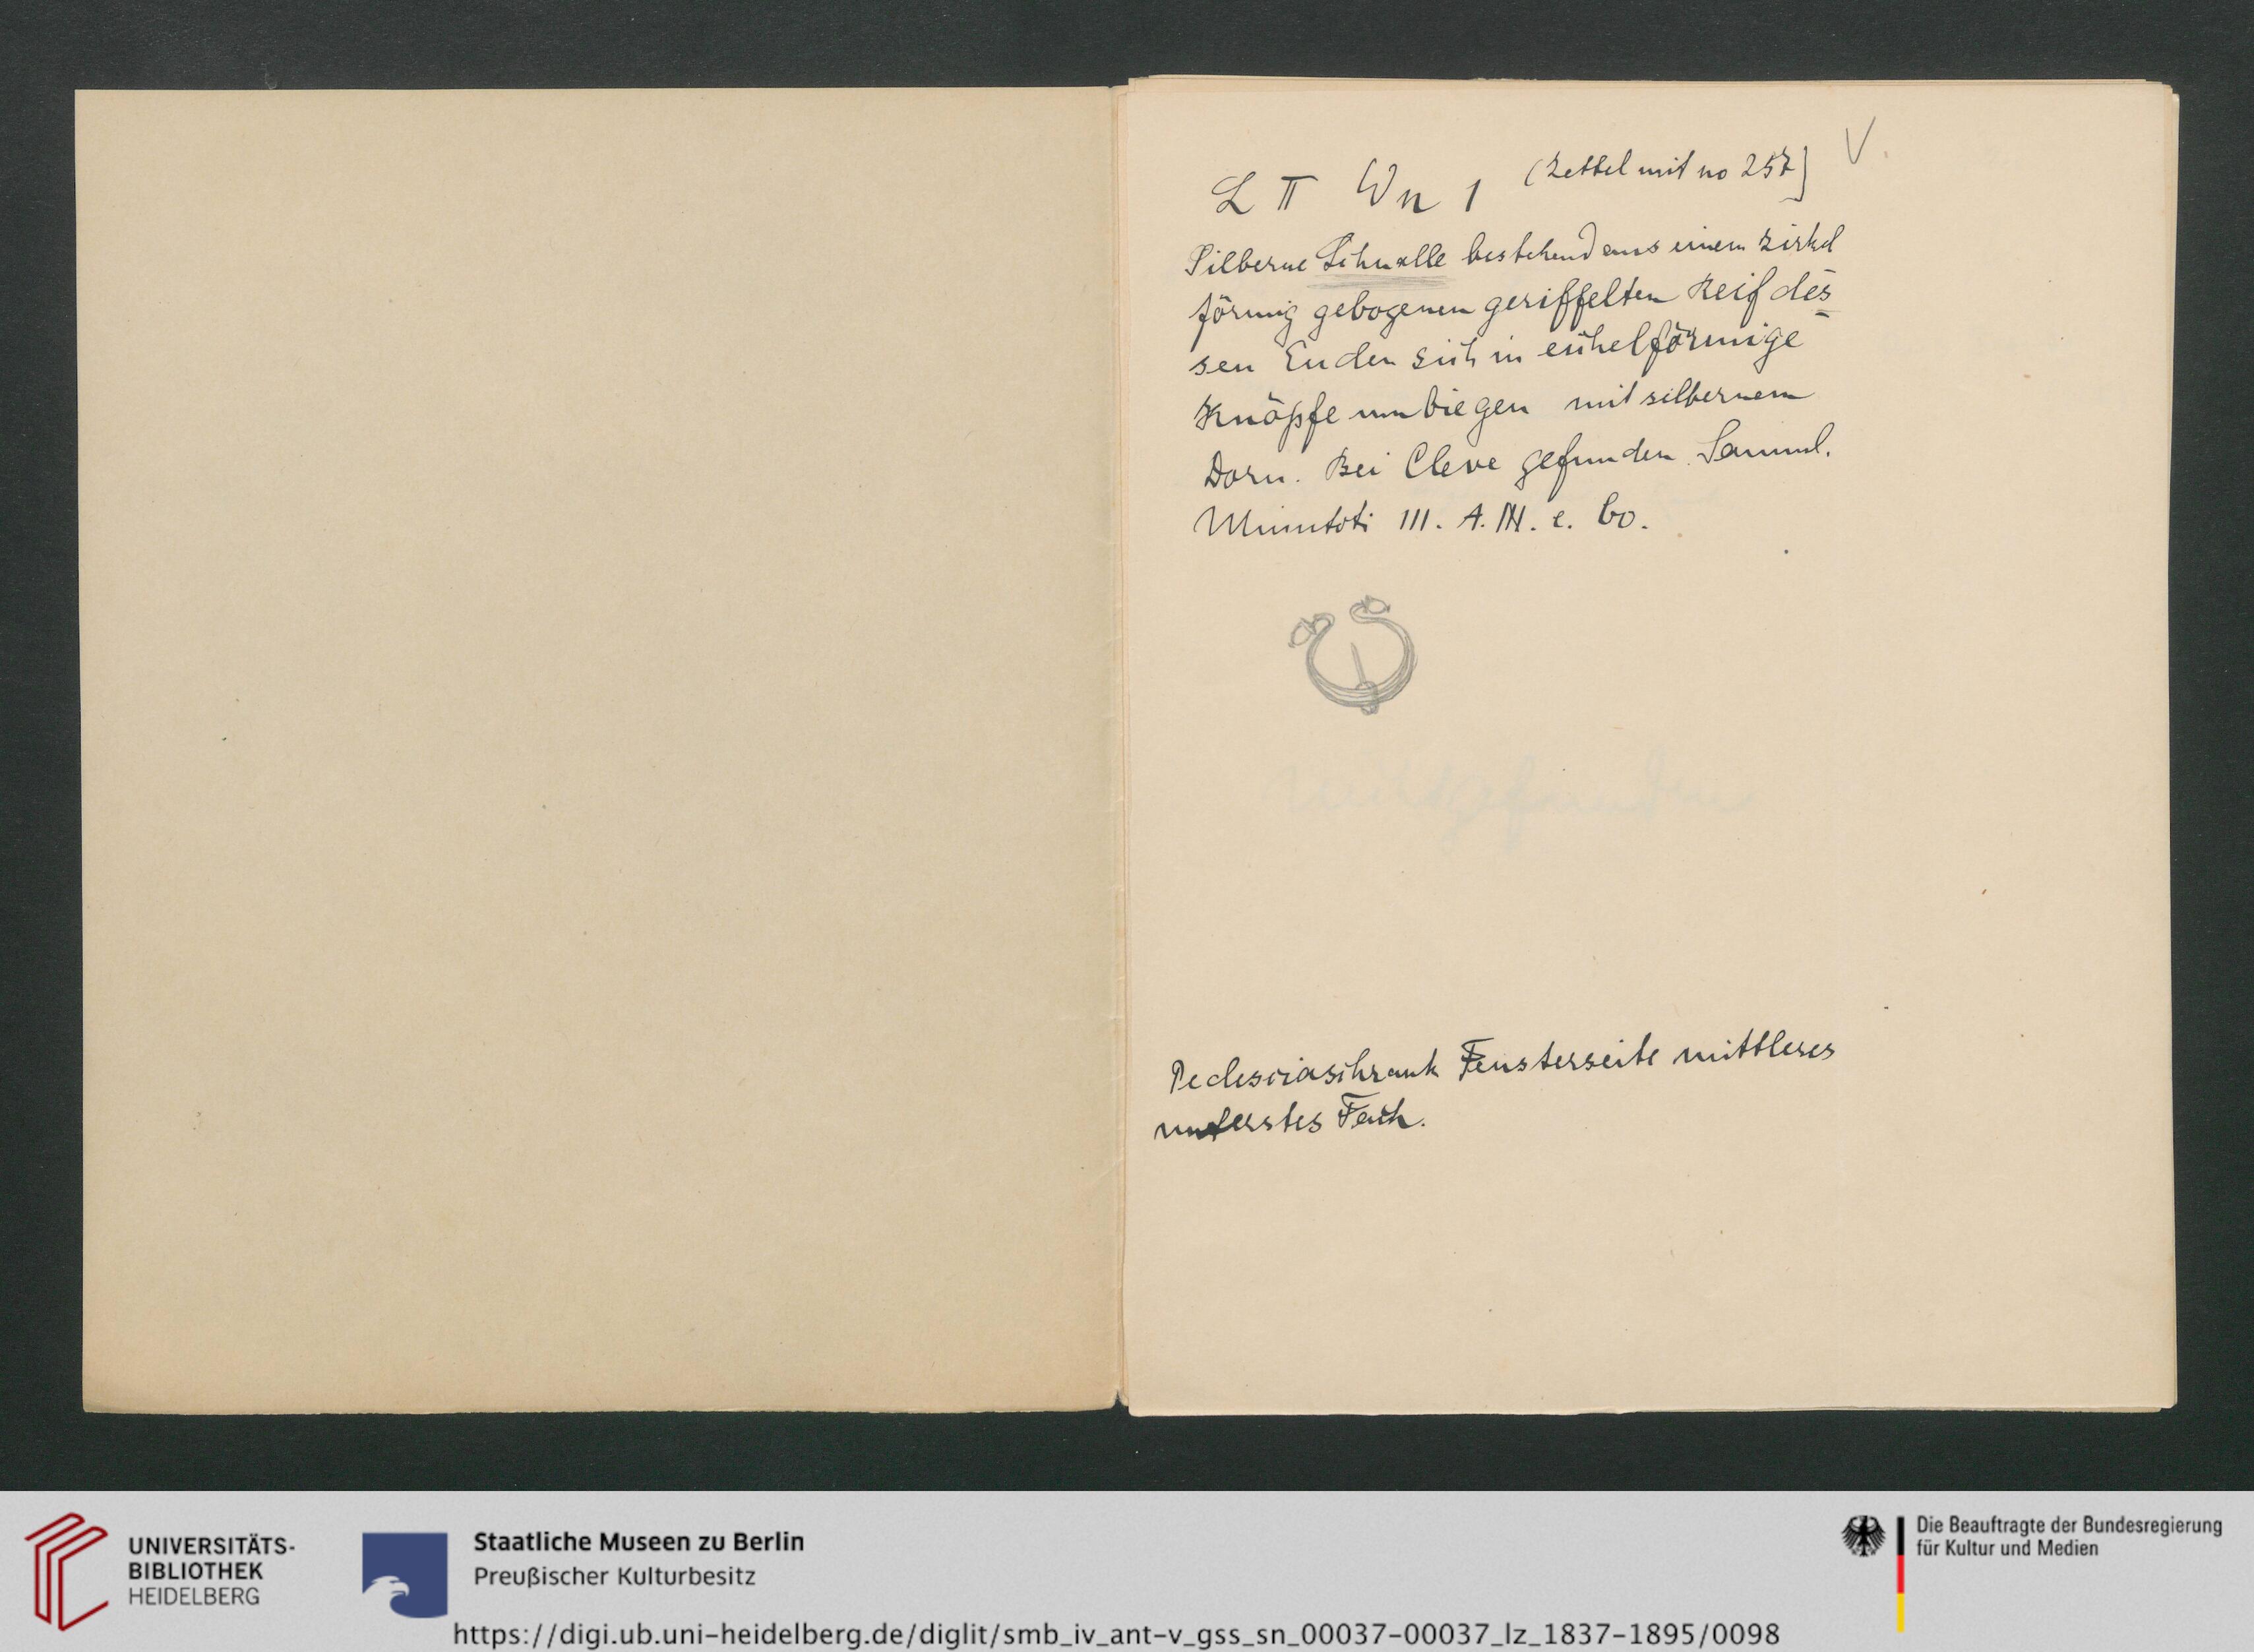 L II Wn 1 (Zettel mit no 257) V.
Silberne Schnalle bestehend aus einem zirkel
förmig gebogenen geriffelten Reif des=
sen Enden sich in eichelförmige
Knöpfe umbiegen mit silbernem
Dorn. Bei Cleve gefunden. Samml.
Minutoli III. A. IV. c. 60.
schrank Fensterseite mittleres
unterstes Fach.
UNIVERSITÄTS-
BIBLIOTHEK
HEIDELBERG
Staatliche Museen zu Berlin
Preußischer Kulturbesitz
https://digi.ub.uni-heidelberg.de/diglit/smb_iv_ant-v_gss_sn_00037-00037_lz_1837-1895/0098
Die Beauftragte der Bundesregierung
für Kultur und Medien